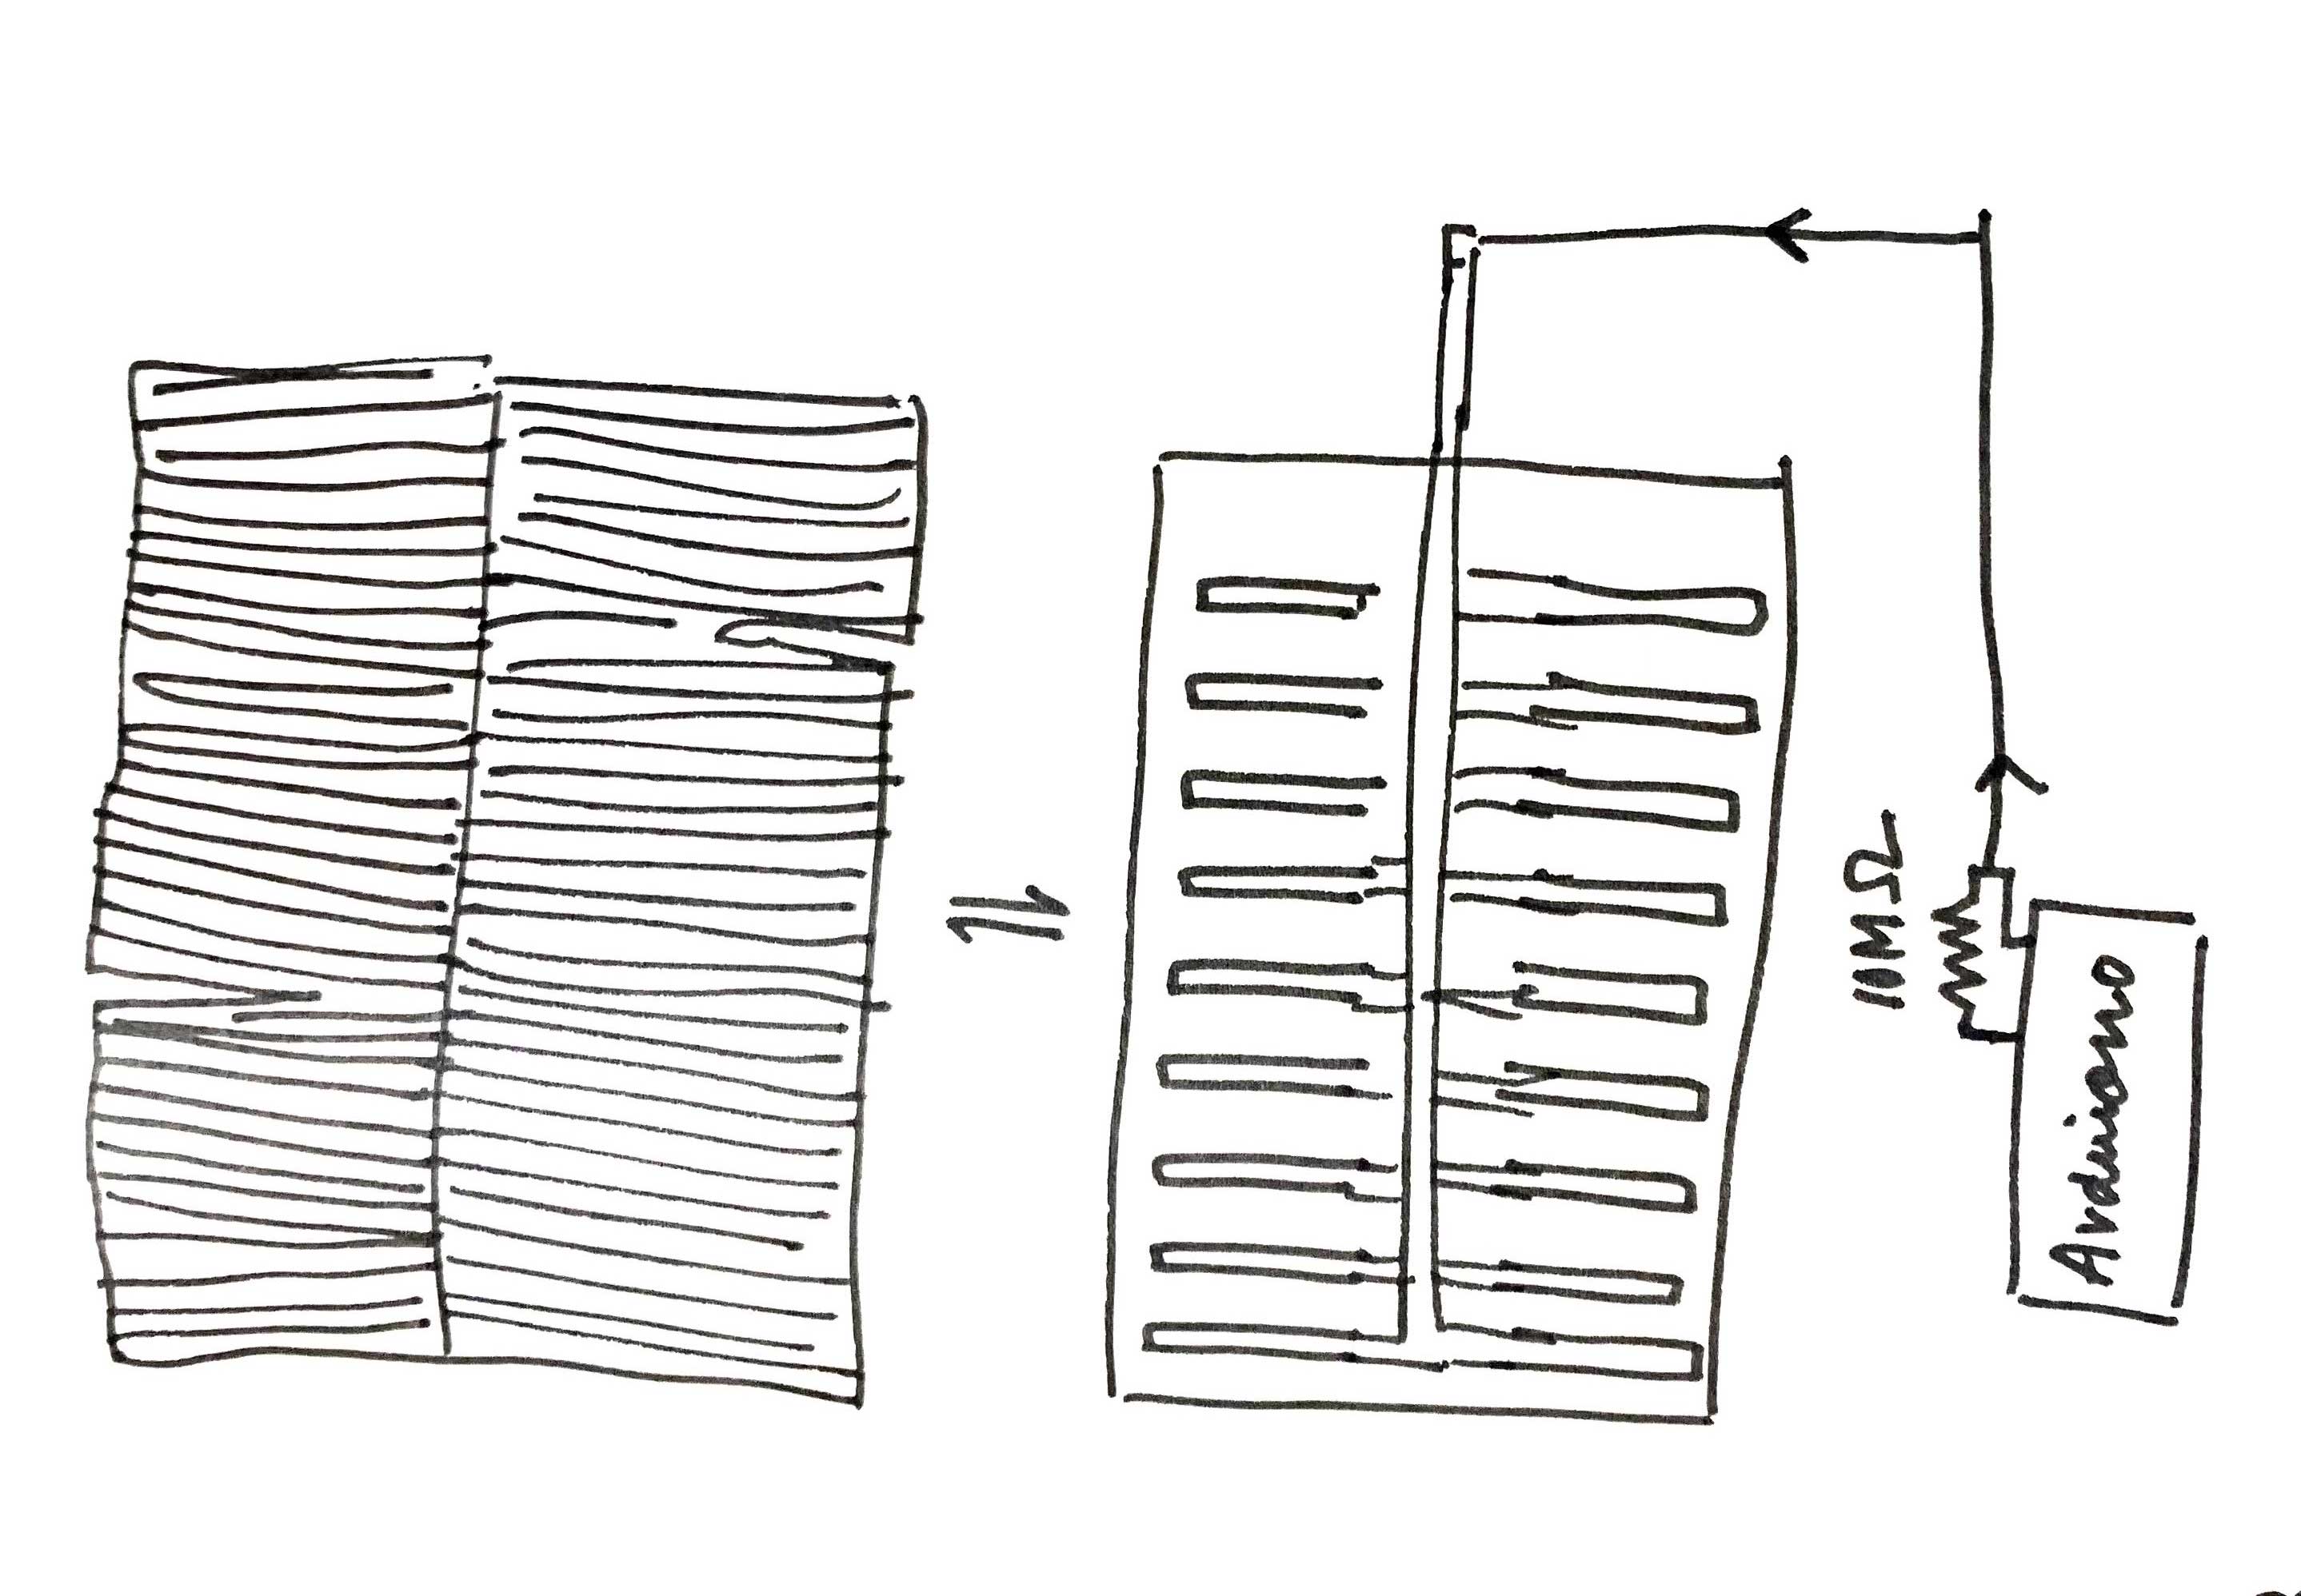 10MΩ
Arduiono